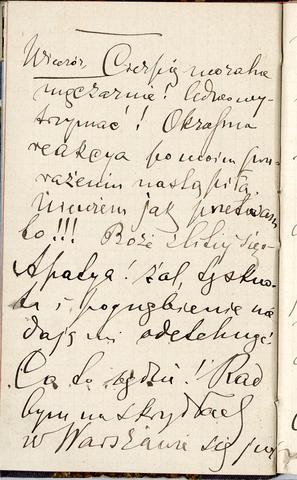 Wieczór. Cierpię moralne
męczarnie! Ledwo wy-
trzymać! Okropna
reakcya po moim prze-
rażeniu nastąpiła.
Niewiem jak przetrwam
to!!! Boże zlituj się.
Apatya! żal, tęskno-
ta i pognębienie nie
dają mi odetchnąć!
Co to będzie! Rad
bym na skrzydłach
w Warszawie się już